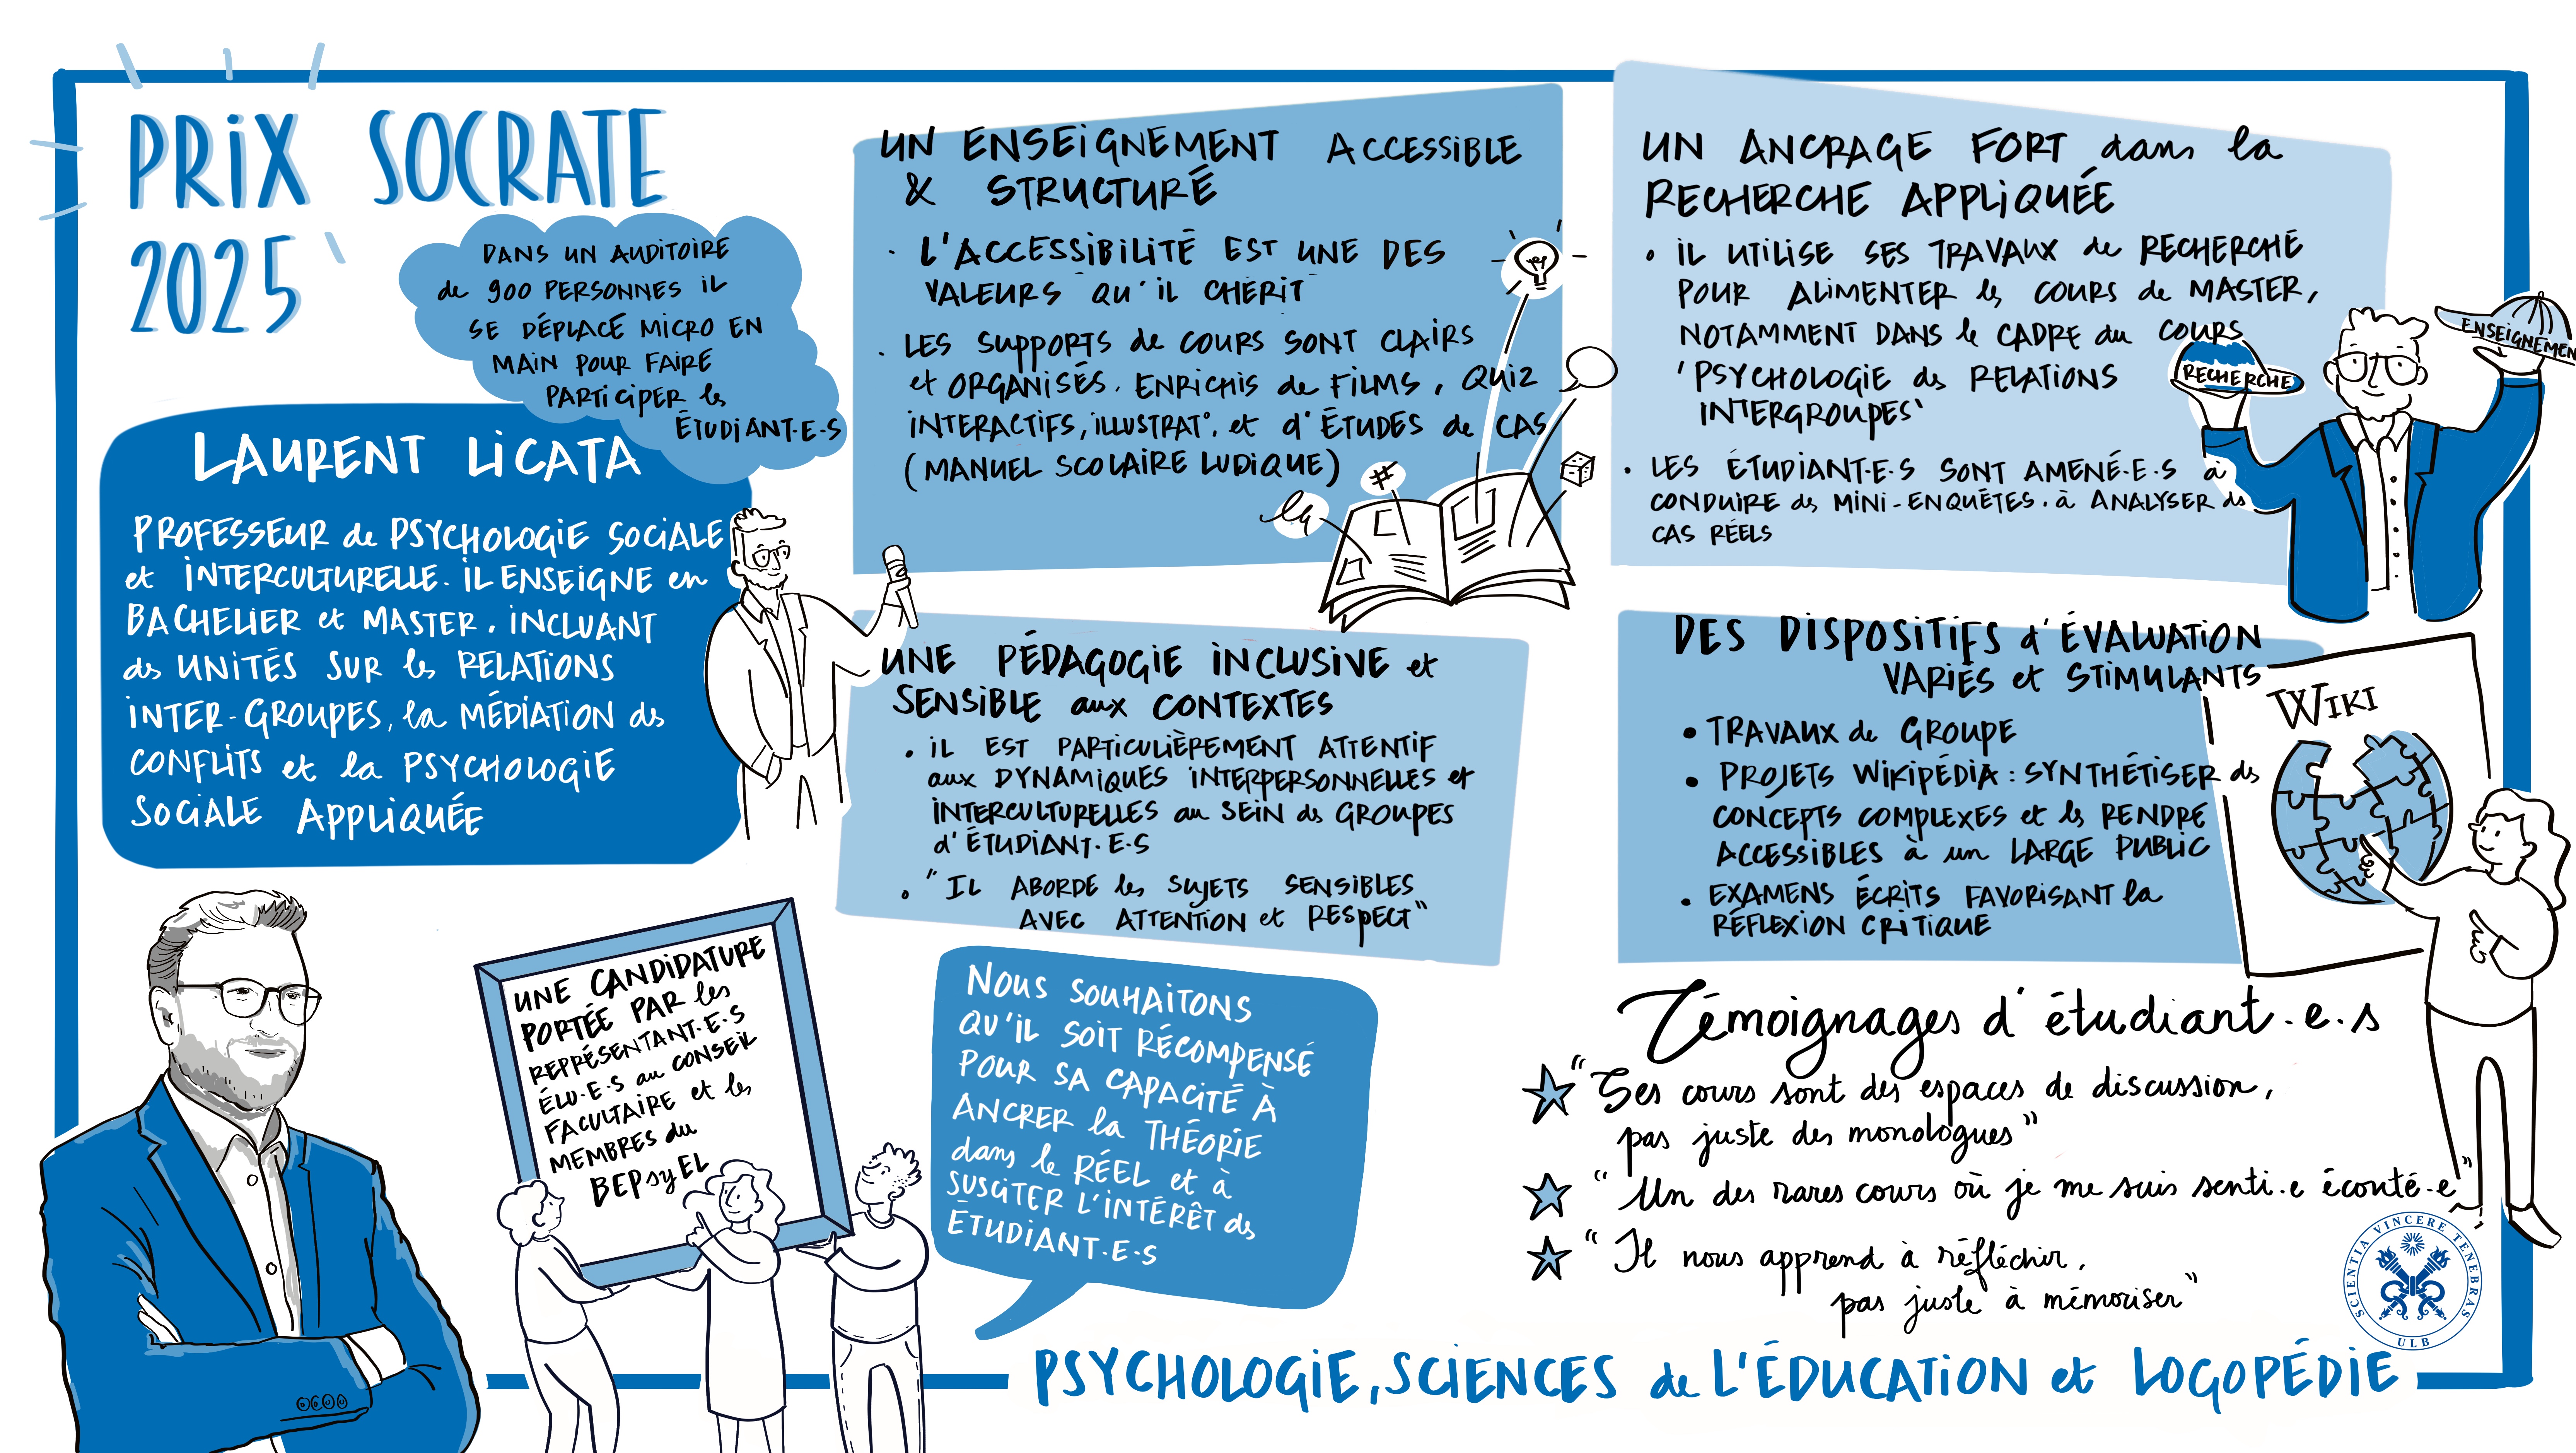 PRIX SOCRATE
2025
DANS UN AUDITOIRE
de 900 PERSONNES IL
SE DÉPLACE MICRO EN
MAIN POUR FAIRE
PARTICIPER les
ÉTUDIANT·E·S
LAURENT LICATA
PROFESSEUR de PSYCHOLOGIE SOCIALE
et INTERCULTURELLE. IL ENSEIGNE en
BACHELIER et MASTER, INCLUANT
des UNITÉS SUR les RELATIONS
INTER-GROUPES, la MÉDIATION des
CONFLITS et la PSYCHOLOGIE
SOCIALE APPLIQUÉE
UNE CANDIDATURE
PORTÉE PAR les
REPRÉSENTANT·E·S
ÉLU·E·S au CONSEIL
FACULTAIRE et les
MEMBRES du
BEPsyEL
UN ENSEIGNEMENT ACCESSIBLE
& STRUCTURÉ
· L'ACCESSIBILITÉ EST UNE DES
VALEURS QU'IL CHÉRIT
· LES SUPPORTS de COURS SONT CLAIRS
et ORGANISÉS. ENRICHIS de FILMS, QUIZ
INTERACTIFS, ILLUSTRAT°. et d'ÉTUDES de CAS
(MANUEL SCOLAIRE LUDIQUE)
#
UNE PÉDAGOGIE INCLUSIVE et
SENSIBLE aux CONTEXTES
• IL EST PARTICULIÈREMENT ATTENTIF
aux DYNAMIQUES INTERPERSONNELLES et
INTERCULTURELLES au SEIN des GROUPES
d'ÉTUDIANT·E·S
• "IL ABORDE les SUJETS SENSIBLES
AVEC ATTENTION et RESPECT"
NOUS SOUHAITONS
QU'IL SOIT RÉCOMPENSÉ
POUR SA CAPACITÉ À
ANCRER la THÉORIE
dans le RÉEL et à
SUSCITER L'INTÉRÊT des
ÉTUDIANT·E·S
UN ANCRAGE FORT dans la
RECHERCHE APPLIQUÉE
• IL UTILISE SES TRAVAUX de RECHERCHE
POUR ALIMENTER les COURS de MASTER,
NOTAMMENT DANS le CADRE du COURS
'PSYCHOLOGIE des RELATIONS
INTERGROUPES'
• LES ÉTUDIANT·E·S SONT AMENÉ·E·S à
CONDUIRE des MINI-ENQUÊTES. à ANALYSER des
CAS RÉELS
RECHERCHE
ENSEIGNEMEN
DES DISPOSITIFS d'ÉVALUATION
VARIÉS et STIMULANTS
• TRAVAUX de GROUPE
• PROJETS WIKIPÉDIA : SYNTHÉTISER des
CONCEPTS COMPLEXES et les RENDRE
ACCESSIBLES à un LARGE PUBLIC
• EXAMENS ÉCRITS FAVORISANT la
RÉFLEXION CRITIQUE
WIKI
Témoignages d'étudiant·e·s
"Ses cours sont des espaces de discussion,
pas juste des monologues"
"Un des rares cours où je me suis senti·e écouté·e"
"Il nous apprend à réfléchir,
pas juste à mémoriser"
SCIENTIA VINCERE TENEBRAS
ULB
PSYCHOLOGIE, SCIENCES de L'ÉDUCATION et LOGOPÉDIE